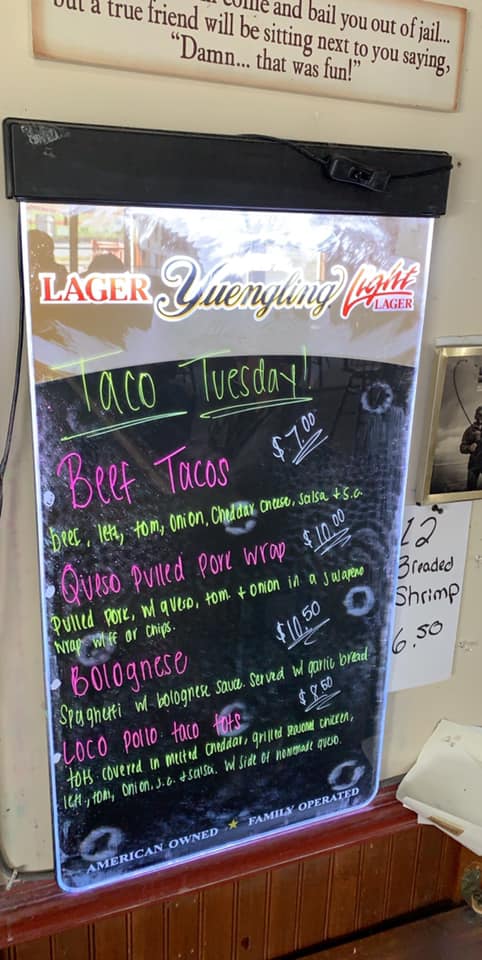 but a true friend will be sitting next to you saying,
"Damn... that was fun!"
LAGER Yuengling Light
LAGER
Taco Tuesday!
Beef Tacos $7.00
beef, lett, tom, onion, Cheddar cheese, salsa + s.c.
Queso Pulled Pork Wrap $10.00
Pulled Pork, w/ queso, tom. + onion in a Jalapeno
wrap w/ FF or Chips.
Bolognese $10.50
Spaghetti w/ bolognese sauce. Served w/ garlic bread
Loco Pollo taco tots $8.50
tots covered in melted Cheddar, grilled seasoned chicken,
lett, tom, onion, s.c. + salsa. w/ side of homemade queso.
AMERICAN OWNED ★ FAMILY OPERATED
12
Breaded
Shrimp
6.50